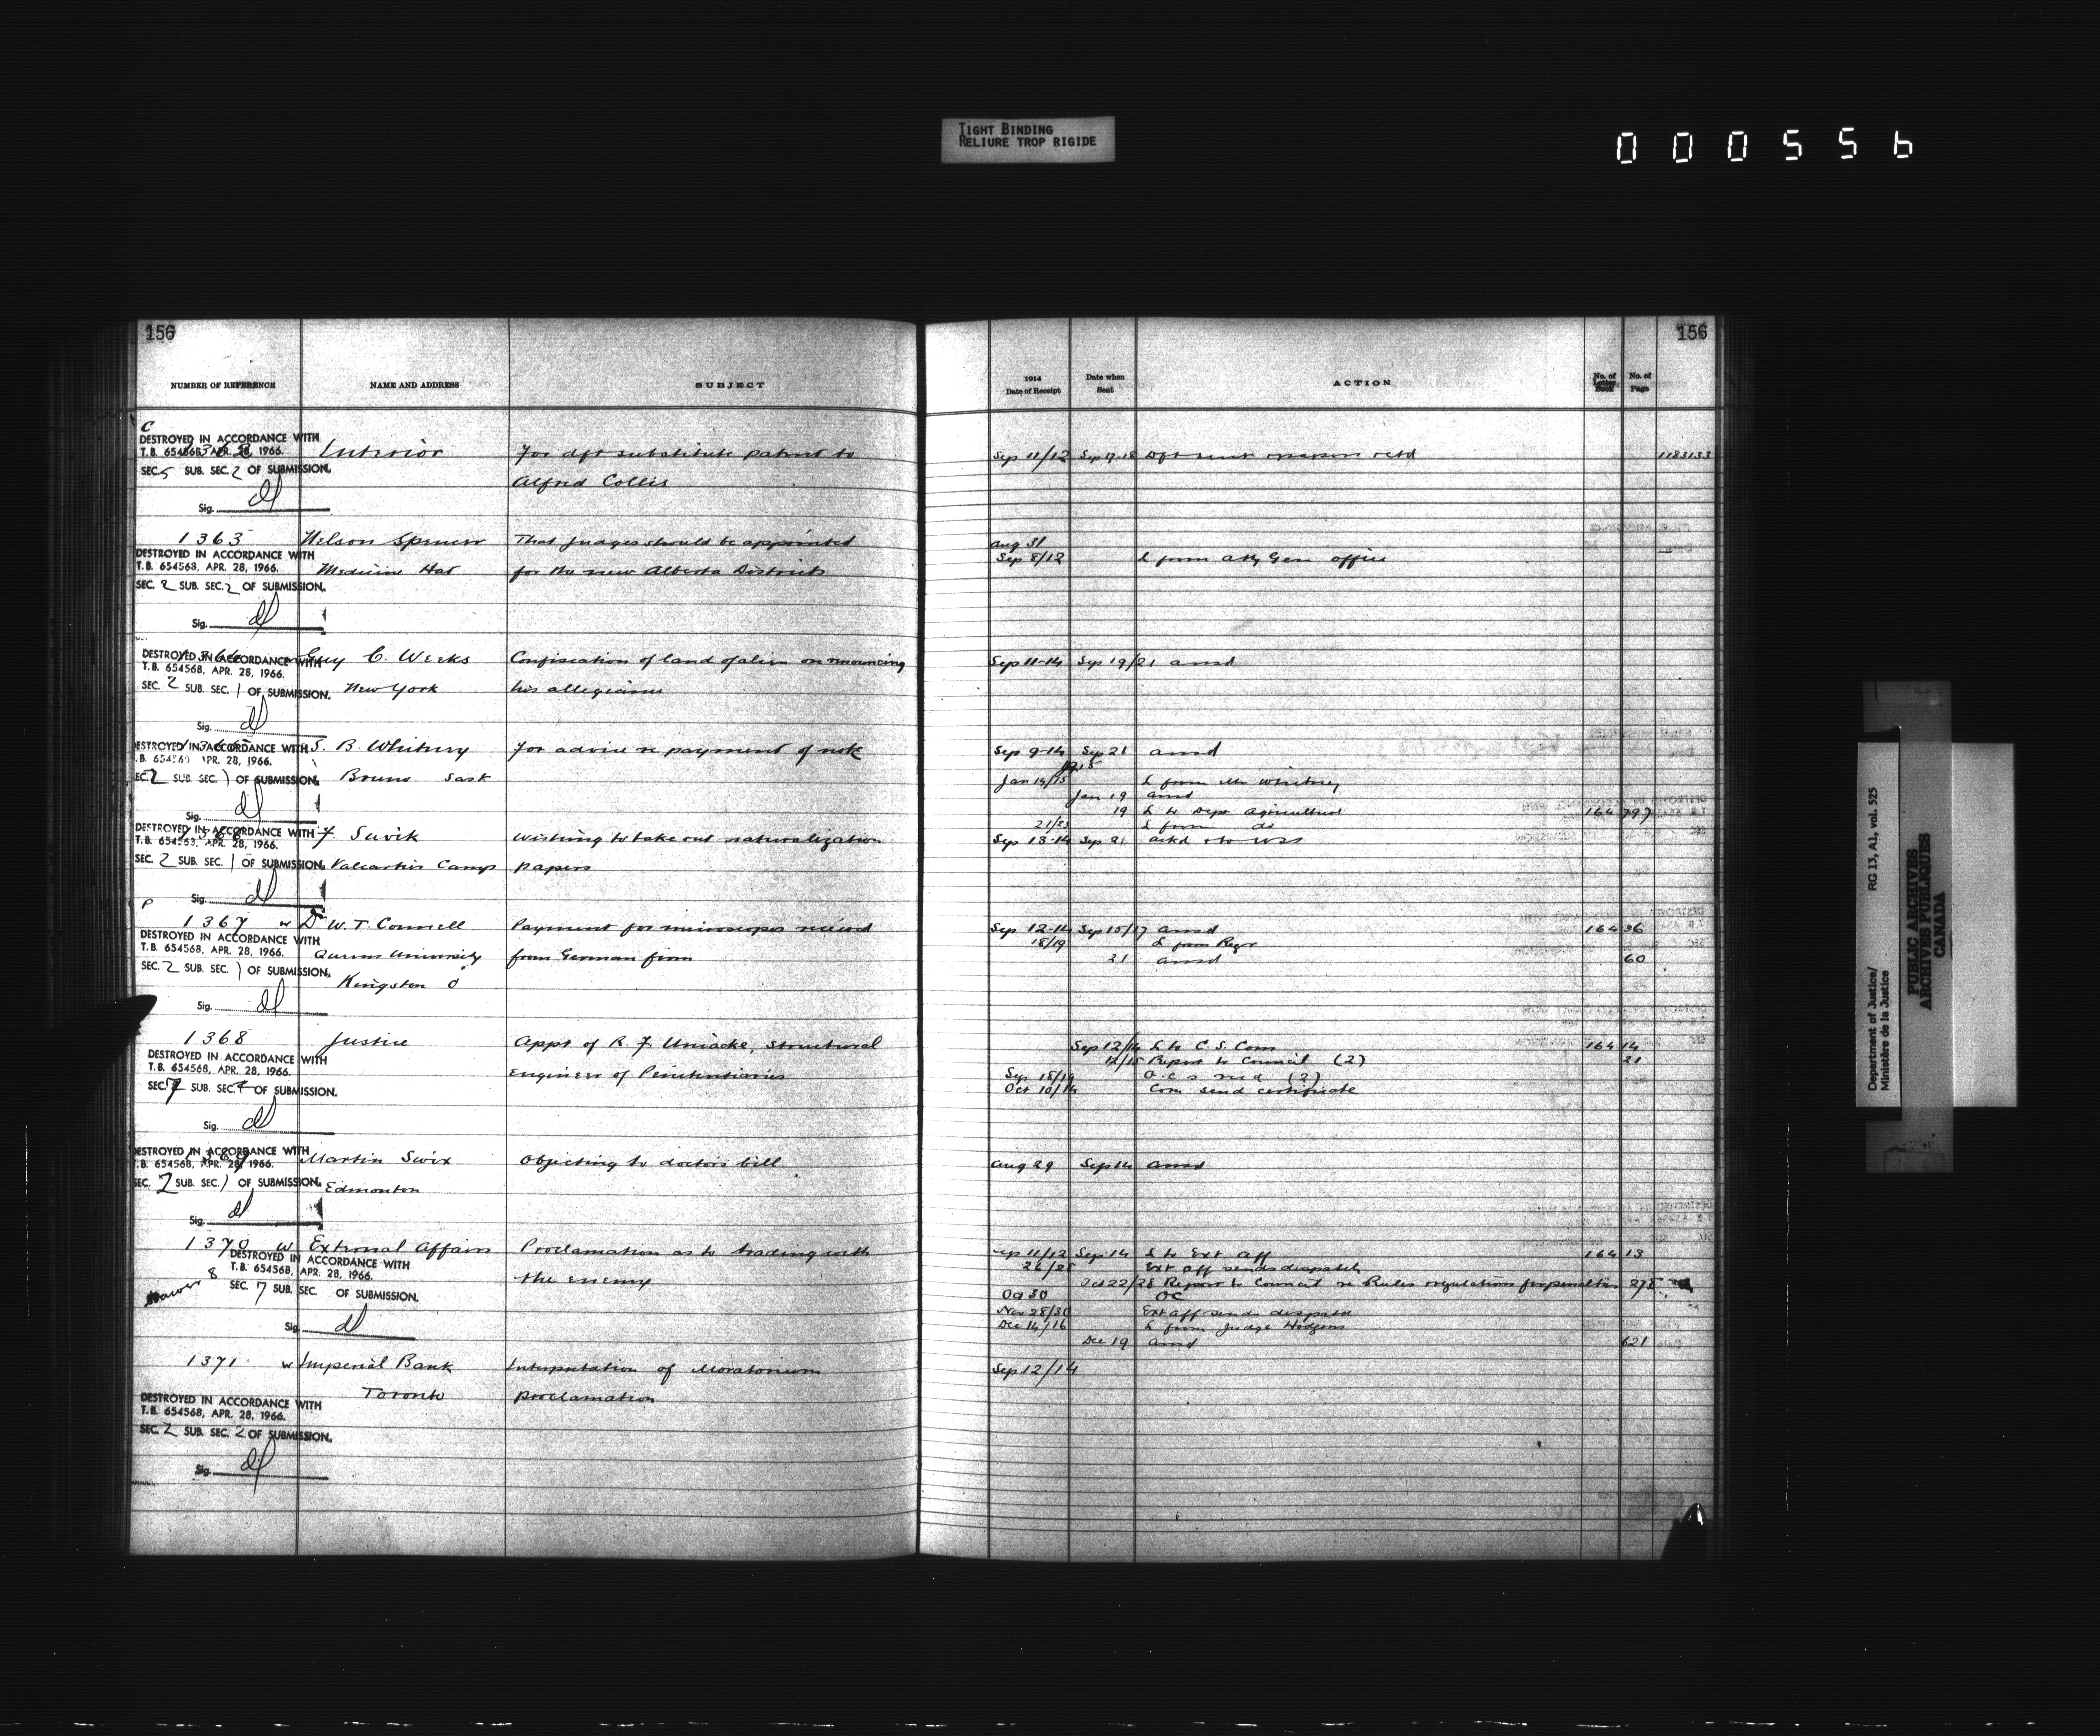 TIGHT BINDING
RELIURE TROP RIGIDE
000556
156
156
NUMBER OF REFERENCE NAME AND ADDRESS SUBJECT
1914 Date of Receipt Date when Sent ACTION No. of Letter Book No. of Page
C
DESTROYED IN ACCORDANCE WITH
T.B. 654568, APR. 28, 1966.
SEC. 5 SUB. SEC. 2 OF SUBMISSION.
Sig.
Interior For dft substitute patent to Sep 11/12 Sep 17-18 Dft sent retd 1183133
Alfred Collis
1363 Nelson Spencer That Judges should be appointed Aug 31
DESTROYED IN ACCORDANCE WITH
T.B. 654568, APR. 28, 1966.
Medicine Hat for the new Alberta Districts Sep 8/12 L from Atty Gen office
SEC. 2 SUB. SEC. 2 OF SUBMISSION.
Sig.
DESTROYED IN ACCORDANCE WITH
T.B. 654568, APR. 28, 1966.
Guy C. Weeks Confiscation of land of alien on renouncing Sep 11-14 Sep 19/21 ansd
SEC. 2 SUB. SEC. 1 OF SUBMISSION.
New York his allegiance
Sig.
DESTROYED IN ACCORDANCE WITH
APR. 28, 1966.
S. B. Whitney For advice re payment of note Sep 9-14 Sep 21 ansd
SEC. 2 SUB. SEC. 1 OF SUBMISSION.
Bruno Sask Jan 14/15 L from Mr Whitney
Jan 19 ansd
Sig.
19 L to Dept Agriculture 164 797
21/23 L from do
DESTROYED IN ACCORDANCE WITH
T.B. 654568, APR. 28, 1966.
F. Suvik Wishing to take out naturalization Sep 13-14 Sep 21 ackd
SEC. 2 SUB. SEC. 1 OF SUBMISSION.
Valcartier Camp papers
Sig.
P
1367 w Dr W. T. Connell Payment for microscopes received Sep 12-14 Sep 15/17 ansd 164 36
DESTROYED IN ACCORDANCE WITH
T.B. 654568, APR. 28, 1966.
Queens University from German firm 18/19 L from Regr
21 ansd 60
SEC. 2 SUB. SEC. 1 OF SUBMISSION.
Kingston O
Sig.
1368 Justice Appt of R. F. Uniacke, Structural Sep 12/14 L to C. S. Com 164 14
DESTROYED IN ACCORDANCE WITH
T.B. 654568, APR. 28, 1966.
Engineer of Penitentiaries 12/15 Report to Council (2) 21
SEC. 7 SUB. SEC. OF SUBMISSION.
Sep 18/19 O.C.s recd (2)
Oct 10/14 Com send certificate
Sig.
DESTROYED IN ACCORDANCE WITH
T.B. 654568, APR. 28, 1966.
Martin Swix Objecting to doctors bill Aug 29 Sep 14 ansd
SEC. 2 SUB. SEC. 1 OF SUBMISSION.
Edmonton
Sig.
1370 w External Affairs Proclamation as to trading with Sep 11/12 Sep 14 L to Ext Aff 164 13
DESTROYED IN ACCORDANCE WITH
T.B. 654568, APR. 28, 1966.
the enemy 26/28 Ext Aff sends despatch
8
SEC. 7 SUB. SEC. OF SUBMISSION.
Oct 22/28 Report to Council re Rules regulations for penalties 275
Oct 30 OC
Nov 28/30 Ext Aff sends despatch
Dec 14/16 L from Judge Hodgins
Sig.
Dec 19 ansd 621
1371 w Imperial Bank Interpretation of Moratorium Sep 12/14
Toronto proclamation
DESTROYED IN ACCORDANCE WITH
T.B. 654568, APR. 28, 1966.
SEC. 2 SUB. SEC. 2 OF SUBMISSION.
Sig.
Department of Justice/ RG 13, A1, vol. 525
Ministère de la Justice
PUBLIC ARCHIVES
ARCHIVES PUBLIQUES
CANADA